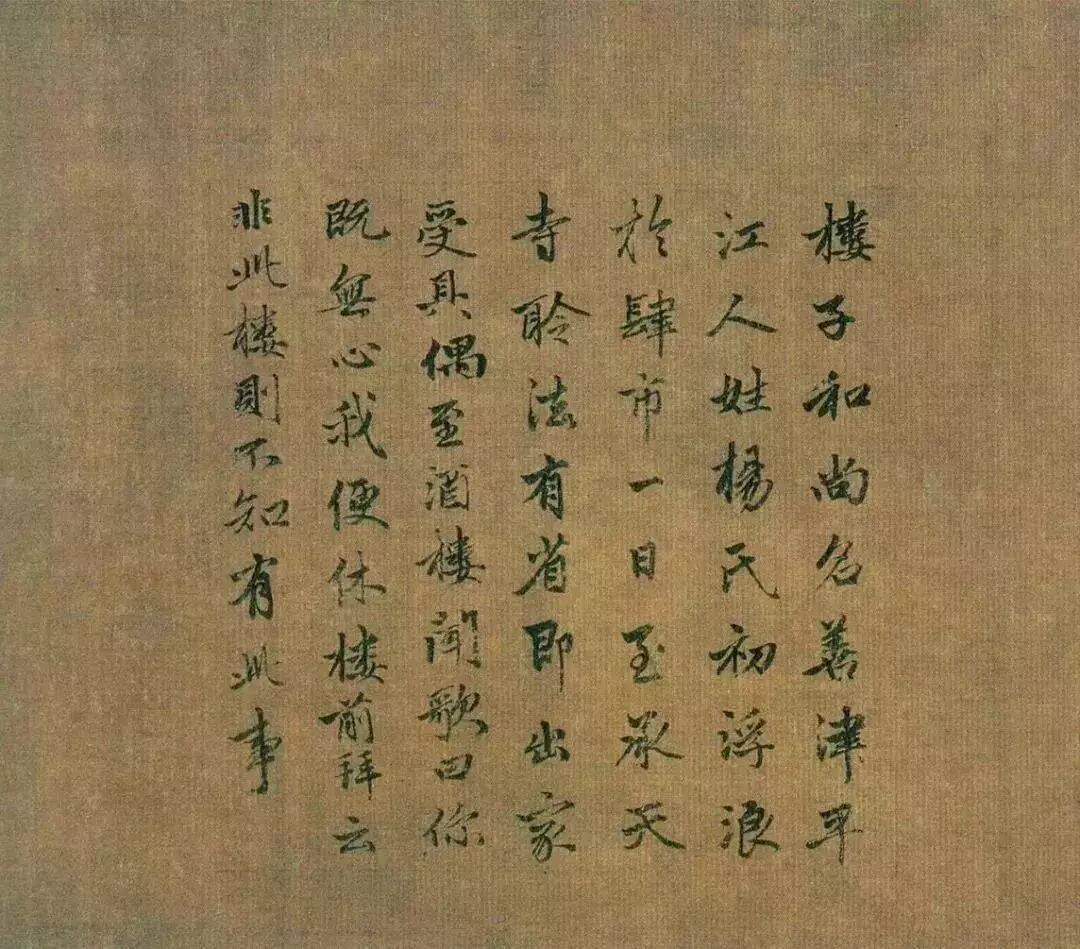 樓子和尚名善津平
江人姓楊氏初浮浪
於肆市一日至承天
寺聆法有省即出家
受具偶至酒樓聞歌曰你
既無心我便休樓前拜云
非此樓則不知有此事